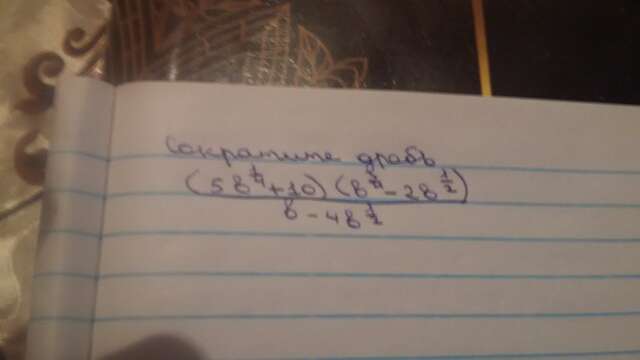 Сократите дробь
(5в^{1/4}+10)(в^{3/4}-2в^{1/2})
в-4в^{1/2}